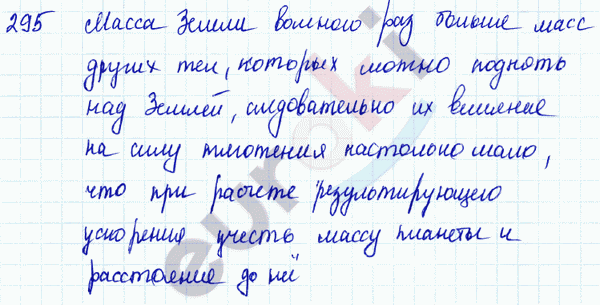 295 Масса Земли во много раз больше масс
других тел, которых можно поднять
над Землей, следовательно их влияние
на силу тяготения настолько мало,
что при расчете результирующего
ускорения учесть массу планеты и
расстояние до неё
euroki